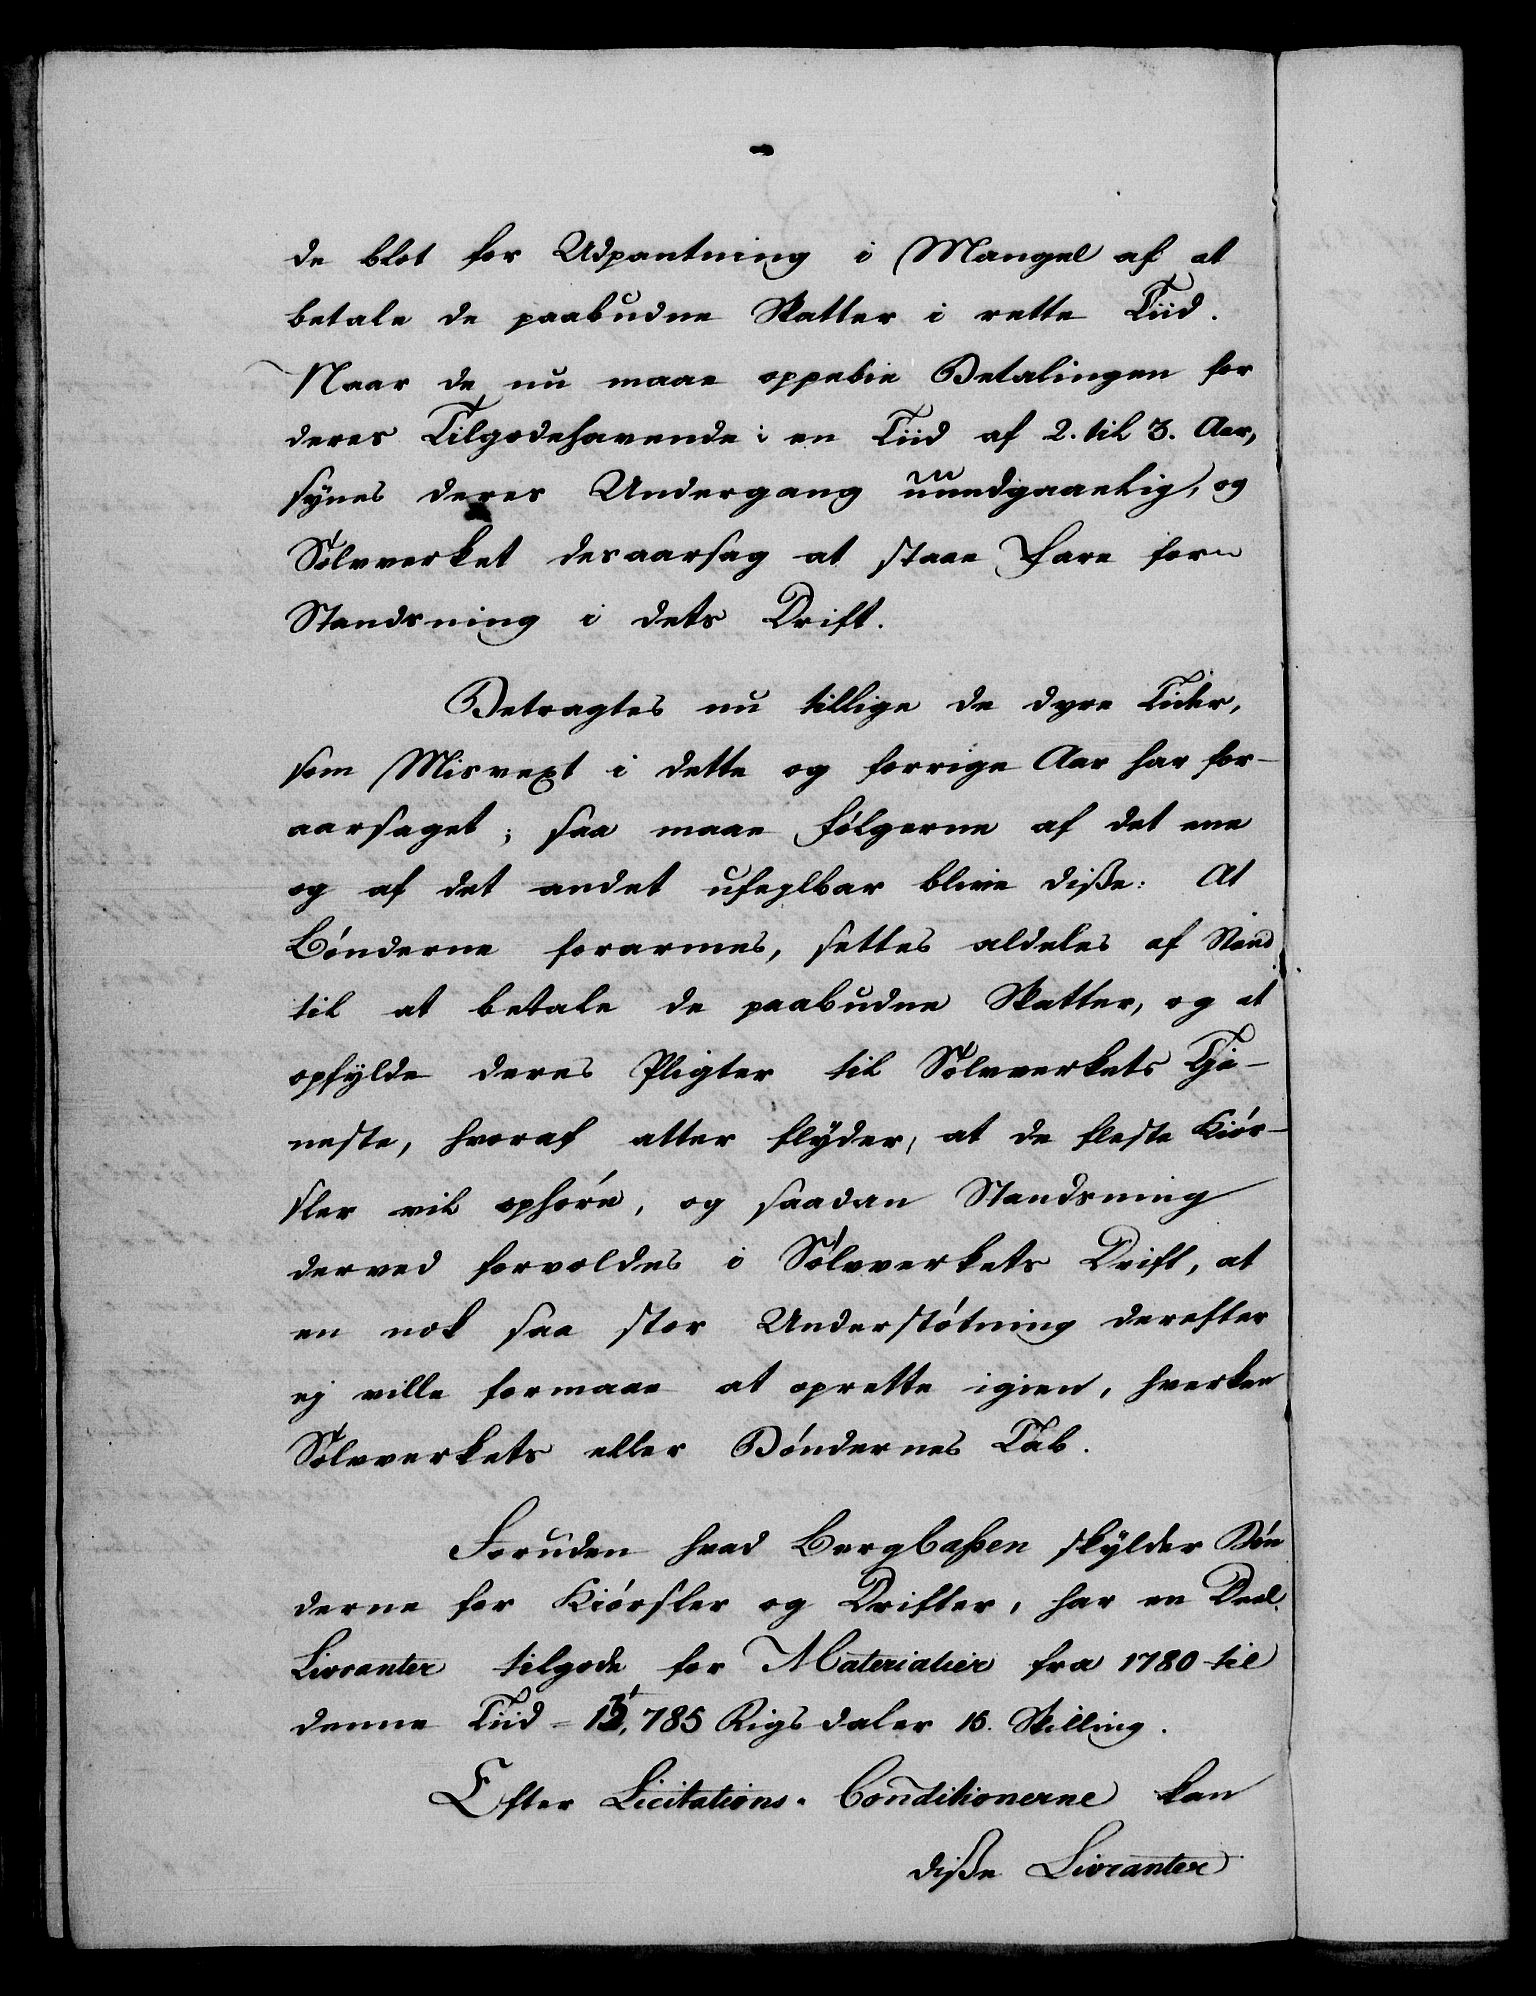 de blot for Udpantning i Mangel af at
betale de paabudne Skatter i rette Tiid.
Naar de nu maae oppebie Betalingen for
deres Tilgodehavende i en Tiid af 2. til 3. Aar,
synes deres Undergang uundgaaelig, og
Sølvverket desaarsag at staae Fare for
Standsning i dets Drift.
Betragtes nu tillige de dyre Tider,
som Misvext i dette og forrige Aar har for-
aarsaget; saa maae Følgerne af det ene
og af det andet ufeylbar blive disse: At
Bønderne forarmes, settes aldeles af Stand
til at betale de paabudne Skatter, og at
opfylde deres Pligter til Sølvverkets Tje-
neste, hvoraf atter flyder, at de fleste Kiør-
sler vil ophøre, og saadan Standsning
derved forvoldes i Sølvverkets Drift, at
en nok saa stor Understøtning derefter
ej ville formaae at oprette igien, hverken
Sølvverkets eller Bøndernes Tab.
Foruden hvad Bergcassen skylder Bøn
derne for Kiørsler og Drifter, har en Deel
Livranter tilgode for Materialier fra 1780 til
denne Tiid = 13,785 Rigsdaler 15. Skilling.
Efter Licitations-Conditionerne kan
disse Livranter